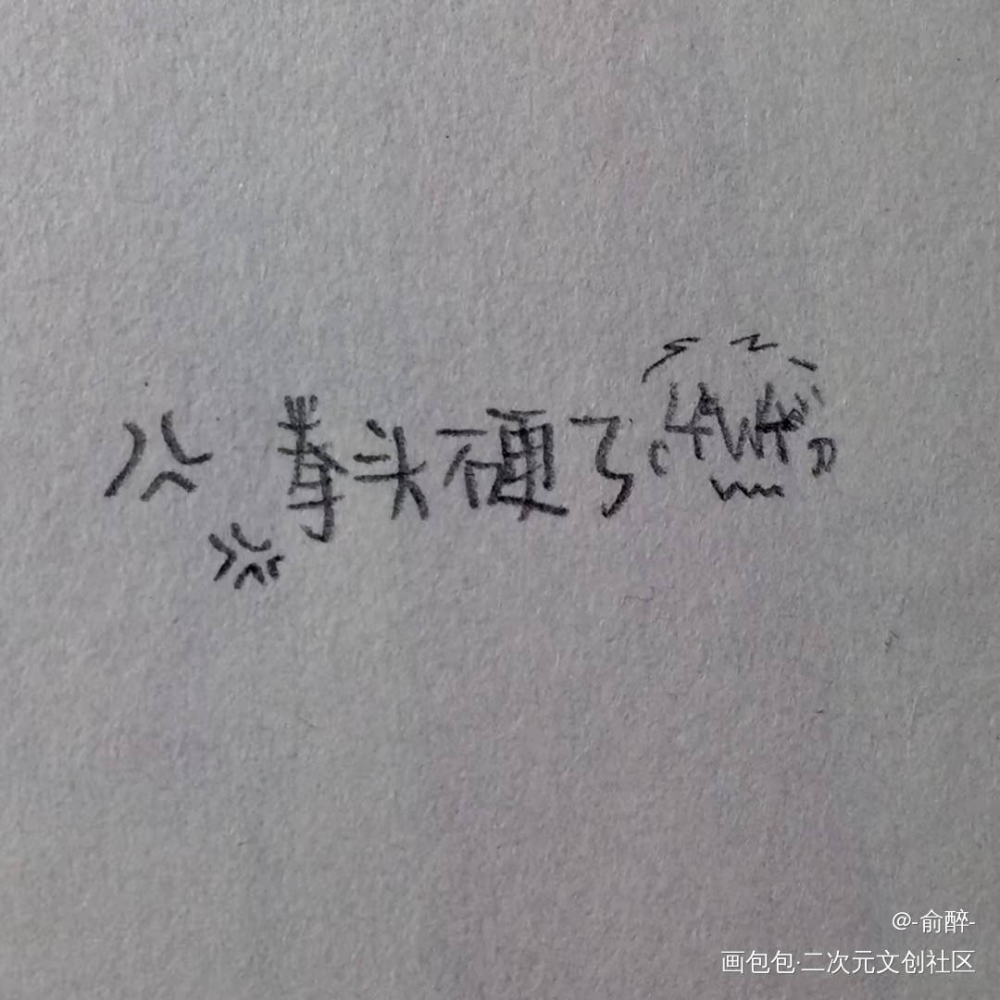 拳头硬了(4W4)
@-俞醉-
画包包·二次元文创社区